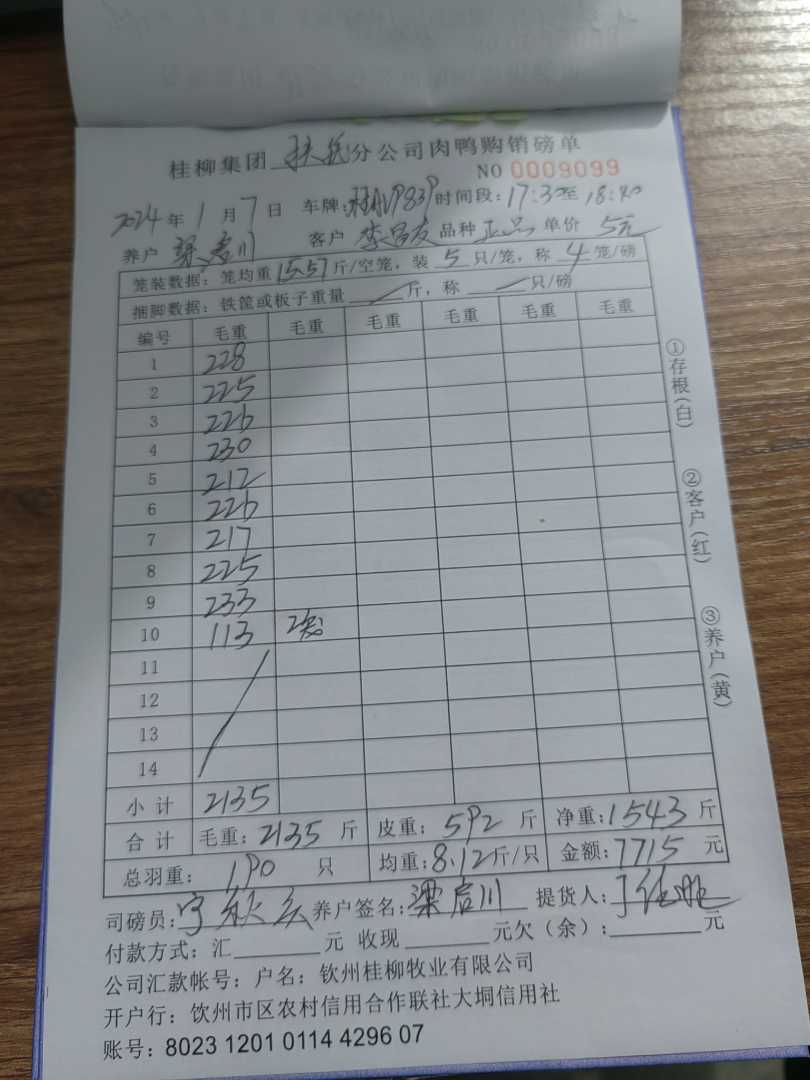 桂柳集团 扶绥 分公司肉鸭购销磅单
NO 0009099
2024年1月7日 车牌: 时间段:17:30至18:40
养户 梁启川 客户 李昌友 品种 正品 单价 5元
笼装数据:笼均重15.57斤/空笼,装5只/笼,称4笼/磅
捆脚数据:铁筐或板子重量 / 斤,称 / 只/磅
编号 毛重 毛重 毛重 毛重 毛重 毛重
1 228
2 225
3 226
4 230
5 212
6 226
7 217
8 225
9 233
10 113 2笼
11
12
13
14
小计 2135
合计 毛重:2135斤 皮重:592斤 净重:1543斤
总羽重:190只 均重:8.12斤/只 金额:7715元
司磅员: 养户签名:梁启川 提货人:
付款方式:汇 元 收现 元欠(余): 元
公司汇款帐号:户名:钦州桂柳牧业有限公司
开户行:饮州市区农村信用合作联社大垌信用社
账号:8023 1201 0114 4296 07
①存根(白)
②客户(红)
③养户(黄)